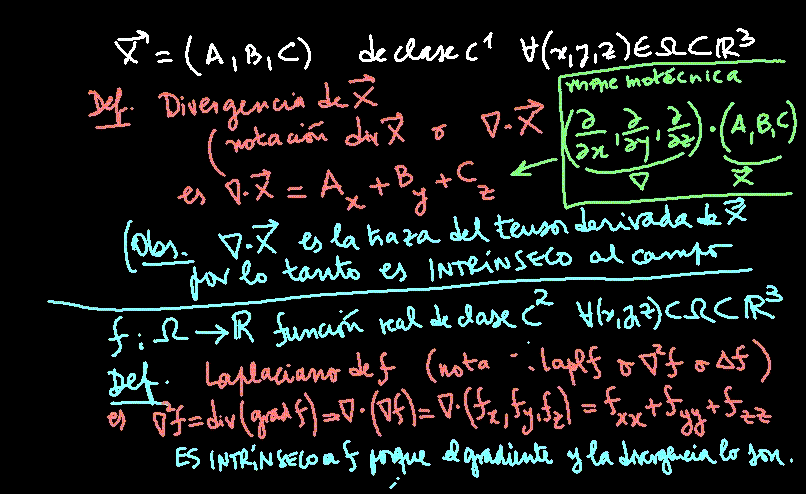 X⃗ = (A, B, C) de clase C¹ ∀(x,y,z)∈Ω⊂ℝ³
Def. Divergencia de X⃗
(notación div X⃗ o ∇·X⃗
es ∇·X⃗ = Aₓ + B_y + C_z
mnemotécnica
(∂/∂x, ∂/∂y, ∂/∂z) · (A, B, C)
∇ X⃗
(Obs. ∇·X⃗ es la traza del tensor derivada de X⃗
por lo tanto es INTRÍNSECO al campo
f : Ω → ℝ función real de clase C² ∀(x,y,z)⊂Ω⊂ℝ³
Def. Laplaciano de f (nota ∴ lapl f o ∇²f o Δf)
es ∇²f = div(grad f) = ∇·(∇f) = ∇·(fₓ, f_y, f_z) = fₓₓ + f_yy + f_zz
ES INTRÍNSECO a f porque el gradiente y la divergencia lo son.